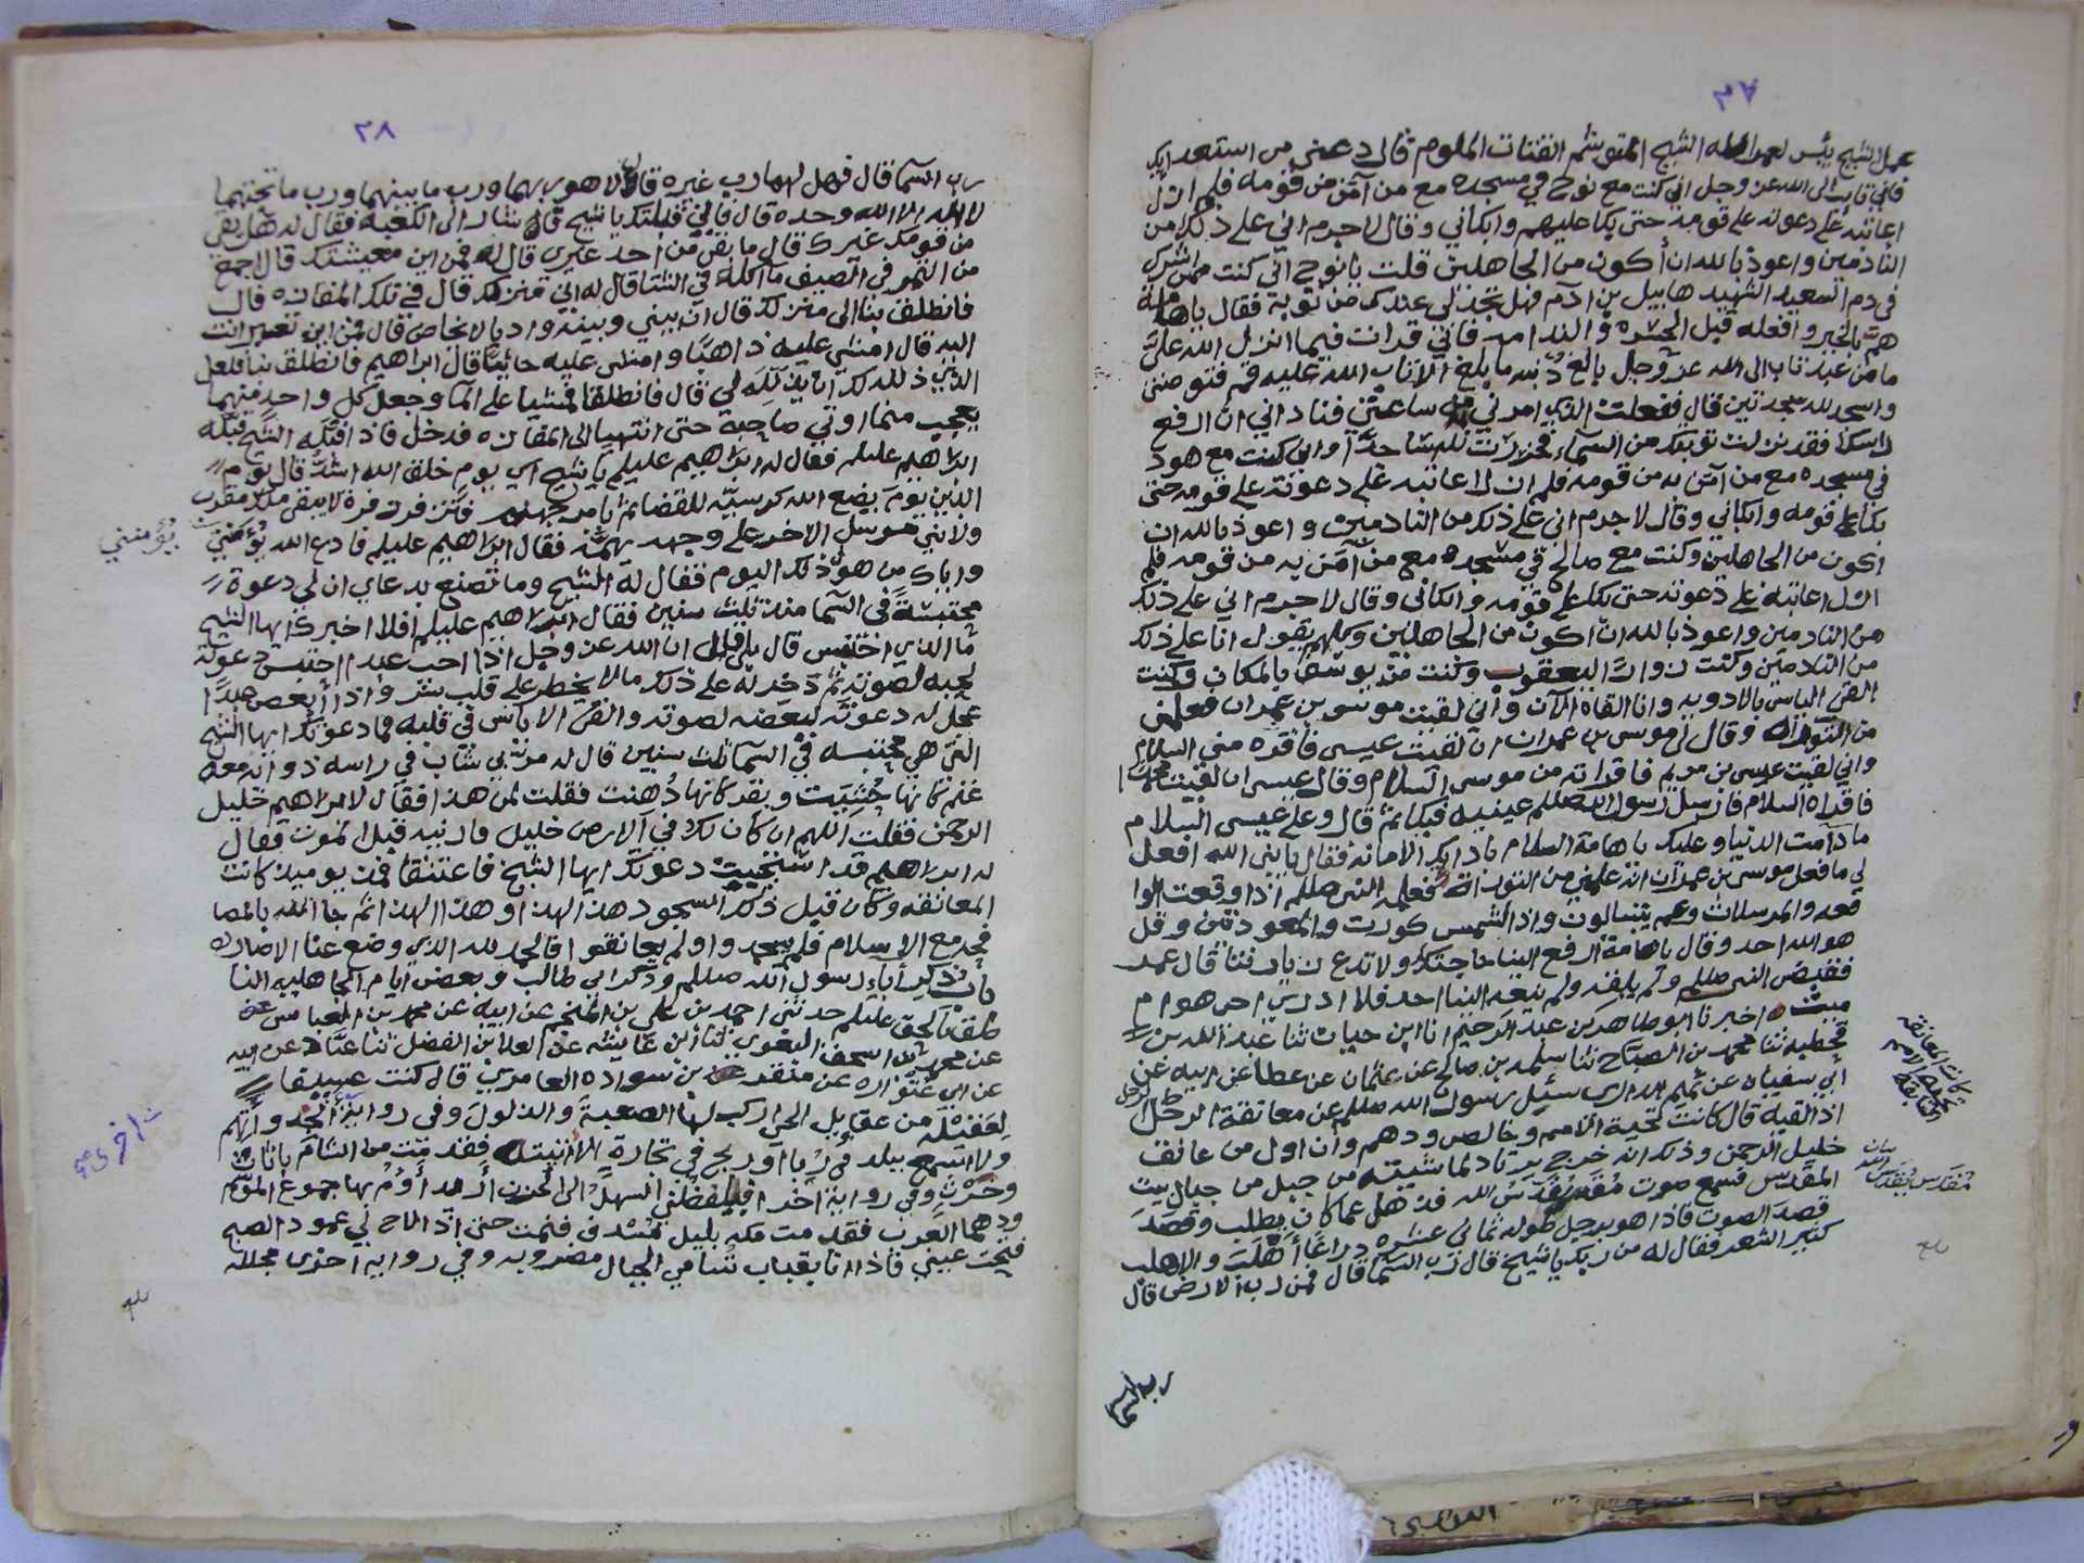 ٣٧
عمل الشيخ بئس لعمر الله الشيخ المتوسم الفتات الملوم قال دعني من استعد ايك
فاني تايب الى الله عز وجل اني كنت مع نوح في مسجده مع من آمن من قومه فلم ازل
اعاتبه على دعوته على قومه حتى بكا عليهم وابكاني وقال لا جرم اني على ذلك من
النادمين واعوذ بالله ان أكون من الجاهلين قلت يا نوح اني كنت ممن اشرك
في دم السعيد الشهيد هابيل بن آدم فهل تجد لي عندك من توبة فقال يا هامة
همّ بالخير وافعله قبل الحسره والندامه فاني قرات فيما انزل الله عليّ
ما من عبد تاب الى الله عز وجل بالغ ذنبه ما بلغ الا تاب الله عليه قم فتوضئ
واسجد لله سجدتين قال ففعلت الذي امرني به من ساعتي فناداني ان ارفع
راسك فقد نزلت توبتك من السماء فخررت لله ساجدا واني كنت مع هود
في مسجده مع من آمن به من قومه فلم ازل اعاتبه على دعوته على قومه حتى
بكا على قومه وابكاني وقال لا جرم اني على ذلك من النادمين واعوذ بالله ان
اكون من الجاهلين وكنت مع صالح في مسجده مع من آمن به من قومه فلم
ازل اعاتبه على دعوته حتى بكا على قومه وابكاني وقال لا جرم اني على ذلك
من النادمين واعوذ بالله ان اكون من الجاهلين وكلهم يقول انا على ذلك
من النادمين وكنت زوارا ليعقوب وكنت من يوسف بالمكان وكنت
القى الياس بالاودية وانا القاه الآن واني لقيت موسى بن عمران فعلمني
من التوراة وقال لي موسى بن عمران ان لقيت عيسى فاقره مني السلام
واني لقيت عيسى بن مريم فاقراته من موسى السلام وقال عيسى ان لقيت محمدا
فاقراه السلام فارسل رسول الله صللم عينيه فبكا ثم قال وعلى عيسى السلام
ما دامت الدنيا وعليك يا هامة السلام بادايك الامانة فقال يا نبي الله افعل
لي ما فعل موسى بن عمران انه علمني من التوراة فعلمه النبي صللم اذا وقعت الوا
قعه والمرسلات وعم يتسالون واذا الشمس كورت والمعوذتين وقل
هو الله احد وقال يا هامة ارفع الينا حاجتك ولا تدع زيارتنا قال عمر
فقبض النبي صللم ولم يلقه ولم ينعه الينا احد فلا ادري احي هو ام
ميت اخبرنا ابو طاهر بن عبد الرحيم انا ابن حيان ثنا عبد الله بن
قحطبه ثنا محمد بن الصباح ثنا سلمه بن صالح عن عثمان عن عطا عن ابيه عن
ابي سفيان عن تميم الدارى سئيل رسول الله صللم عن معانقة الرجل
اذا لقيه قال كانت تحية الامم وخالص ودهم وان اول من عانق
خليل الرحمن وذلك انه خرج يرتاد لماشيته من جبل من جبال بيت
المقدس فسمع صوت مقدس يقدس الله فذهل عما كان يطلب وقصد
قصد الصوت فاذا هو برجل طوله ثماني عشره ذراعا أهلب والاهلب
كثير الشعر فقال له من ربك يا شيخ قال رب السما قال فمن رب الارض قال
رب السما
كانت المعانقة
تحية الامم
السابقة
مقدس يقدس الله
بلغ
٣٨
رب السما قال فهل لهما رب غيره قال لا هو ربهما ورب ما بينهما ورب ما تحتهما
لا اله الا الله وحده قال فاني قبلتك يا شيخ قال شار الى الكعبة فقال له هل بقي
من قومك غيرك قال ما بقي من احد غيرى قال له فمن اين معيشتك قال اجمع
من الثمر في الصيف ما آكله في الشتا قال له اين منزلك قال في تلك المفازه قال
فانطلق بنا الى منزلك قال ان بيني وبينه واديا لا يخاض قال فمن اين تعبر انت
اليه قال امشي عليه ذاهبا وامشي عليه جائيا قال ابراهيم فانطلق بنا فلعل
الذي ذلله لك ان يذلله لي قال فانطلقا فمشيا على الما وجعل كل واحد منهما
يعجب مما اوتي صاحبه حتى انتهيا الى المفازه فدخل فاذا قبلة الشيخ قبلة
ابراهيم عليلم فقال له ابراهيم عليلم يا شيخ اي يوم خلق الله اشدّ قال يوم
الدين يوم يضع الله كرسيه للقضا ثم يامر جهنم فتزفر زفرة لا يبقى ملك مقرب
ولا نبي مرسل الا خر على وجهه يهمه فقال ابراهيم عليلم فادع الله يؤمنني
واياك من هول ذلك اليوم فقال له الشيخ وما تصنع بدعاي ان لي دعوة
محتبسة في السما منذ ثلث سنين فقال ابراهيم عليلم افلا اخبرك ايها الشيخ
ما الذي احتبس قال بلى قال ان الله عز وجل اذا احب عبدا احتبس دعوته
لحبه لصوته ثم ذخر له على ذلك ما لا يخطر على قلب بشر واذا ابغض عبدا
عجل له دعوته لبغضه لصوته والقى الاياس في قلبه فما دعوتك ايها الشيخ
التي هي محتبسه في السما ثلث سنين قال له مر بي شاب في راسه ذوابه معه
غنم كانها حشيت وبقر كانها دهنت فقلت لمن هذا فقال لابراهيم خليل
الرحمن فقلت اللهم ان كان لك في الارض خليل فارنيه قبل الموت فقال
له ابراهيم قد استجيبت دعوتك ايها الشيخ فاعتنقا فمن يوميذ كانت
المعانقه وكان قبل ذلك السجود هذا لهذا وهذا لهذا ثم جا الله بالمصا
فحه مع الاسلام فلم يسجدوا ولم يعانقوا فالحمد لله الذي وضع عنا الاصار
بان ذكر أباء رسول الله صللم وذكر ابي طالب وبعض ايام الجاهليه النا
طق بالحق عليلم حدثني احمد بن علي بن المنجم عن ابيه عن محمد بن العباس
عن محمد بن اسحق البغوي ثنا ابن عايشه عن العلا بن الفضل ثنا عباد عن ابيه
عن ابي عتواره عن منقر بن سواده العامري قال كنت عسيفا
لعقيلة من عقايل الحي اركب لها الصعبة والذلول وفي رواية أنجد وأتهم
ولا اسمع ببلد في ربا او ربح في تجارة الا اتيته فقدمت من الشام باثاث
وخرثي وفي رواية اخرى فلفظني السهل الى الحزن اريد أؤم بها جموع الموسم
ودهما العرب فقدمت مكه بليل مسدف فنمت حتى اذا لاح لي عمود الصبح
فتحت عيني فاذا انا بقباب تسامي الجبال مضروبه وفي رواية اخرى مجلله
يؤمنني
بلغ